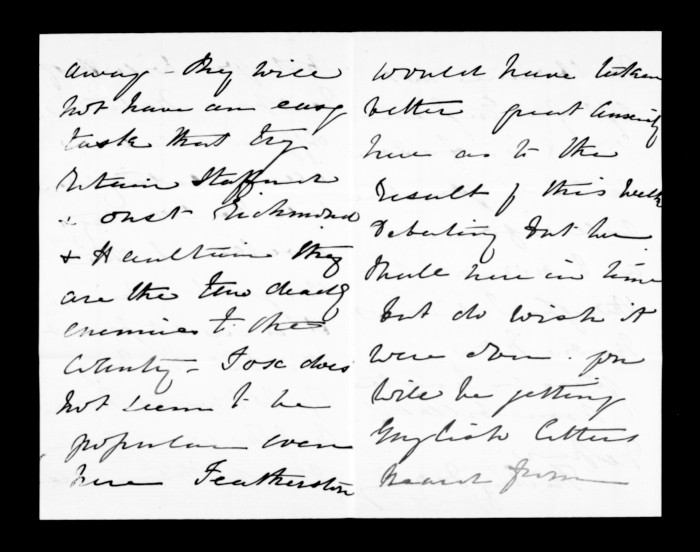 away - They will
not have an easy
task that try
retain Stafford
& oust Richmond
& Haultain they
are the two deadly
enemies to the
County - Fox does
not seem to be
popular even
here Featherston
would have taken
better great anxiety
here as to the
result of this weeks
Debating but we
shall hear in time
but do wish it
were over. you
will be getting
English letters
heard from